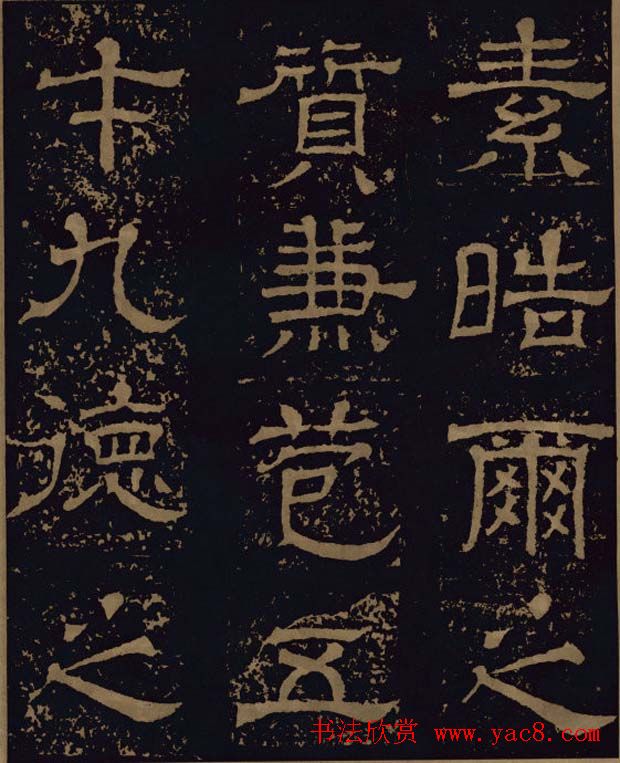 素晧爾之
質兼苞五
才九德之
书法欣赏 www.yac8.com